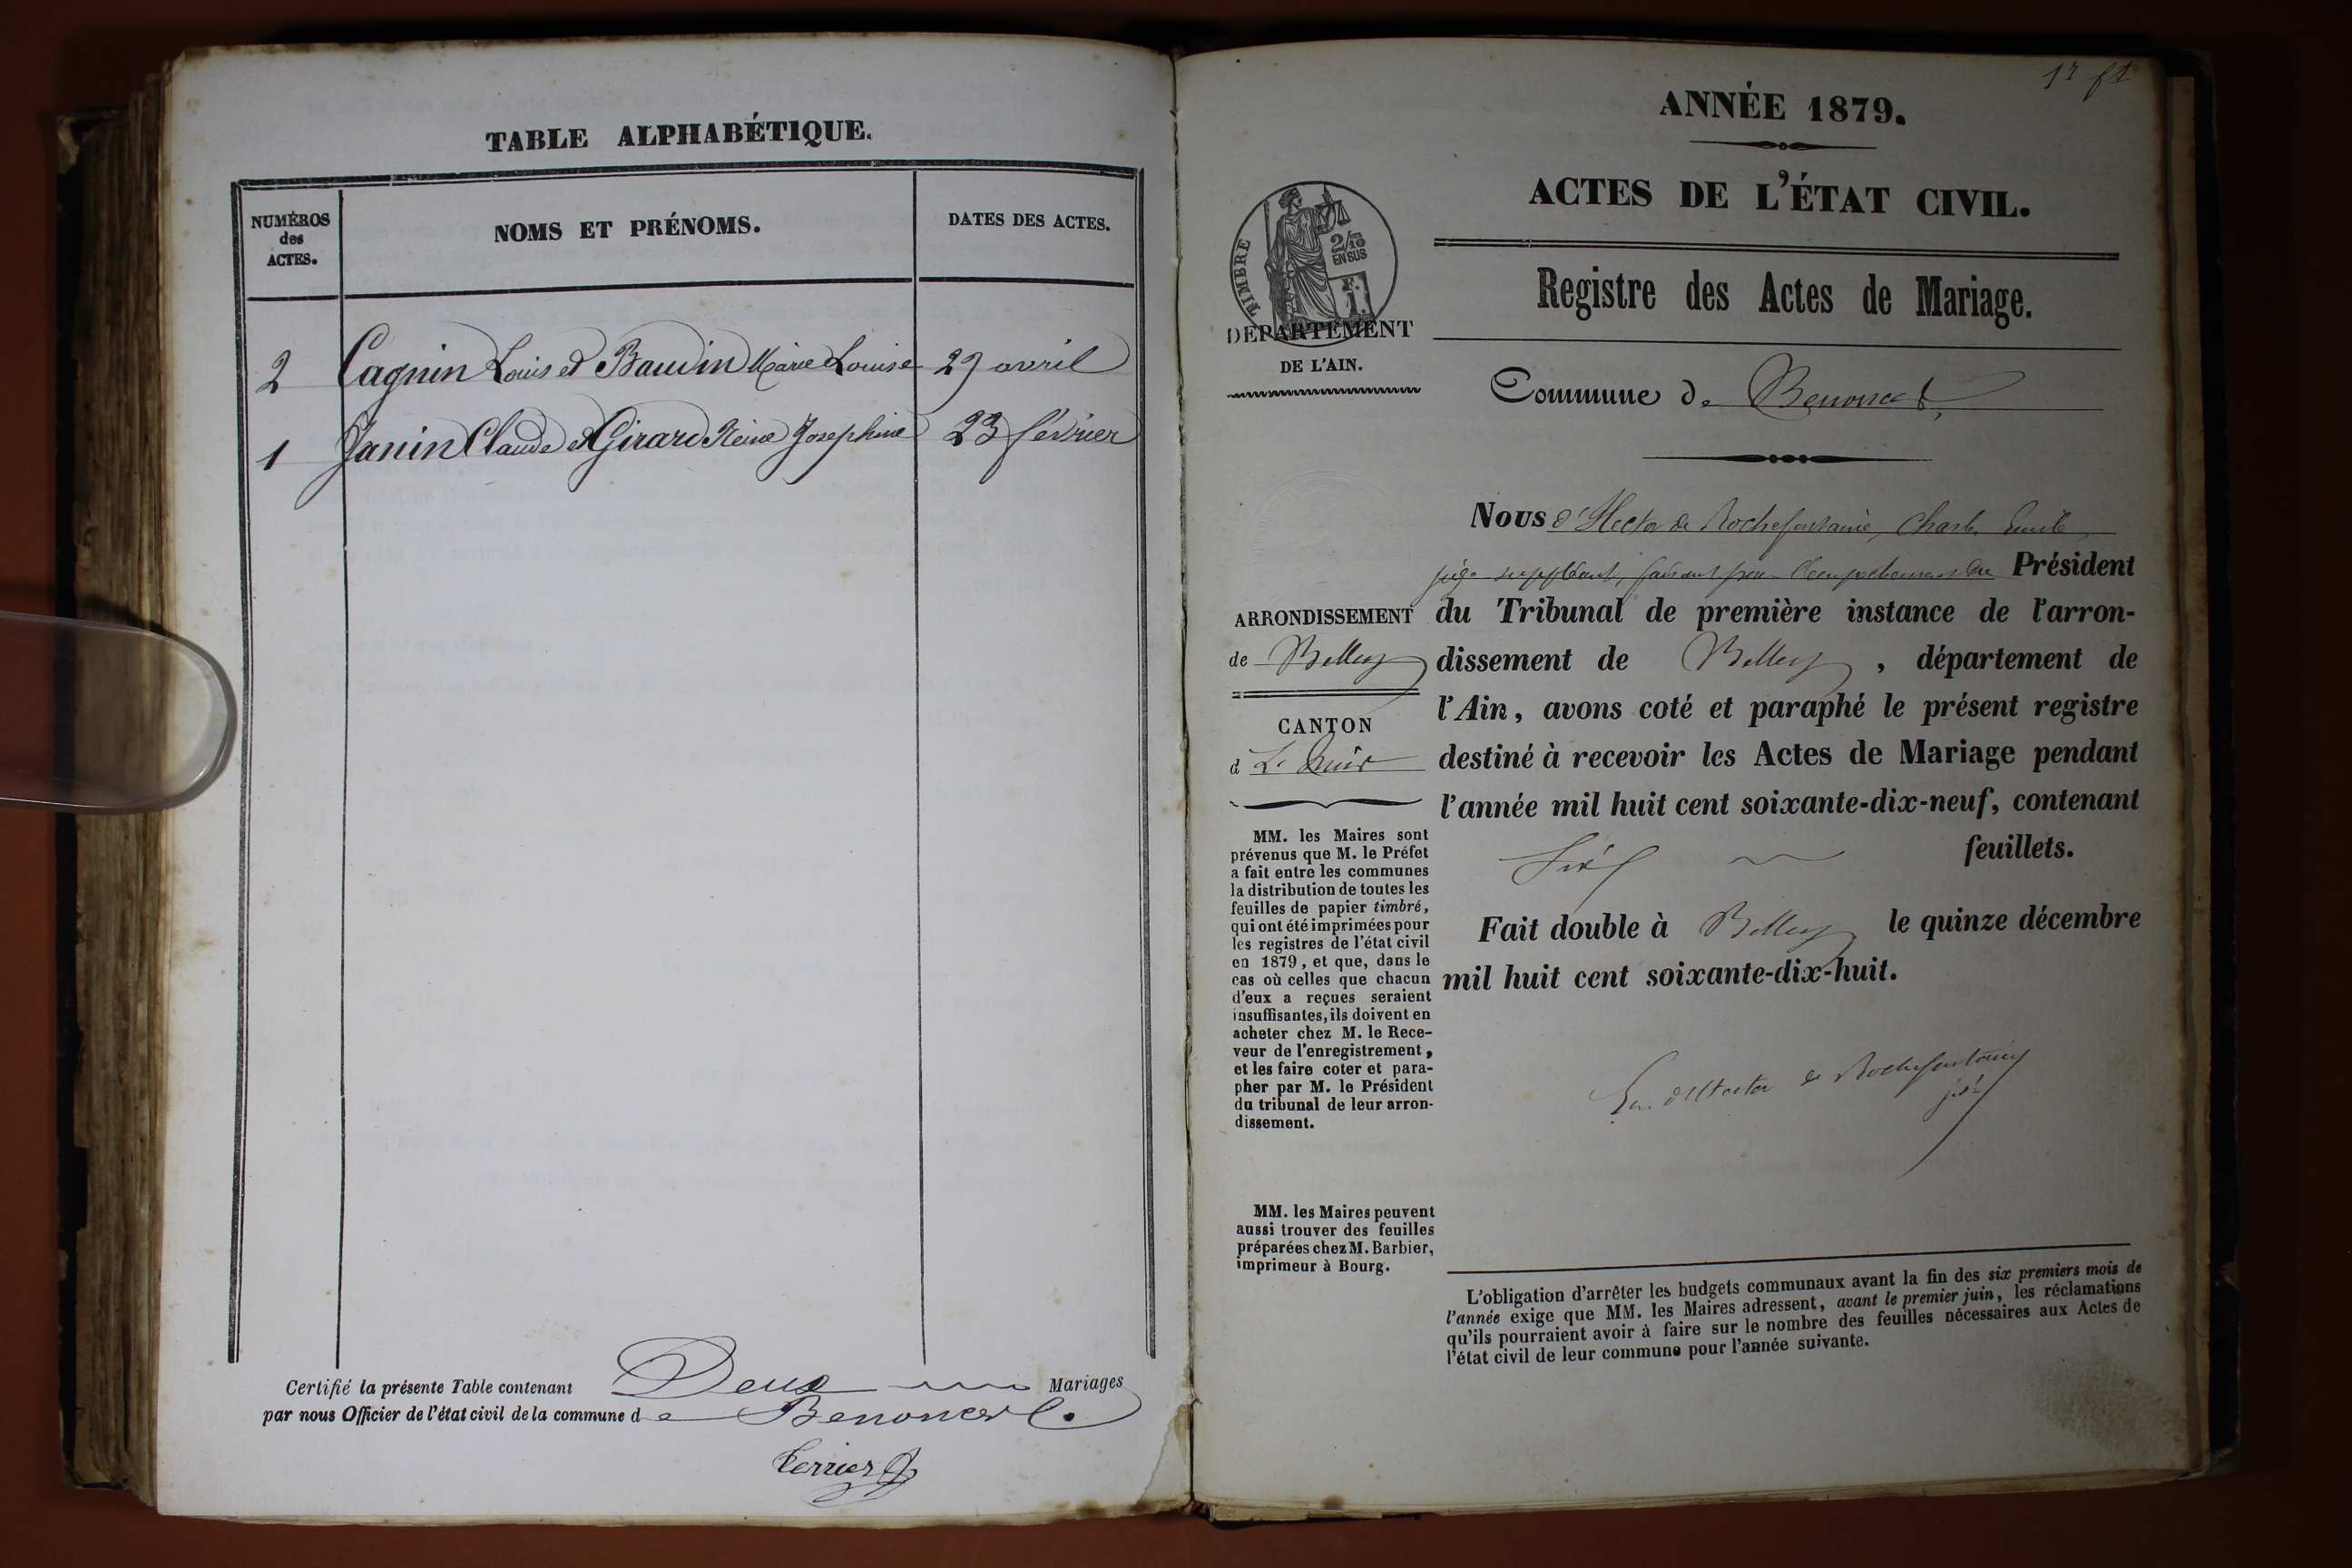 TABLE ALPHABÉTIQUE.
NUMÉROS
des
ACTES.
NOMS ET PRÉNOMS.
DATES DES ACTES.
2 Cagnin Louis et Baudin Marie Louise 29 avril
1 Janin Claude et Girard Reine Josephine 23 février
Certifié la présente Table contenant Deux Mariages
par nous Officier de l'état civil de la commune de Benonces.
ANNÉE 1879.
ACTES DE L'ÉTAT CIVIL.
TIMBRE
2/10
EN SUS
F.
1.
DÉPARTEMENT
DE L'AIN.
Registre des Actes de Mariage.
Commune de Benonces
Nous d'Hector de Rochefontaine, Charles Emile,
juge suppléant, faisant pour l'empêchement du Président
ARRONDISSEMENT
de Belley
CANTON
du Tribunal de première instance de l'arron-
dissement de Belley, département de
l'Ain, avons coté et paraphé le présent registre
destiné à recevoir les Actes de Mariage pendant
l'année mil huit cent soixante-dix-neuf, contenant
feuillets.
Fait double à Belley le quinze décembre
mil huit cent soixante-dix-huit.
MM. les Maires sont
prévenus que M. le Préfet
a fait entre les communes
la distribution de toutes les
feuilles de papier timbré,
qui ont été imprimées pour
les registres de l'état civil
en 1879, et que, dans le
cas où celles que chacun
d'eux a reçues seraient
insuffisantes, ils doivent en
acheter chez M. le Rece-
veur de l'enregistrement,
et les faire coter et para-
pher par M. le Président
du tribunal de leur arron-
dissement.
MM. les Maires peuvent
aussi trouver des feuilles
préparées chez M. Barbier,
imprimeur à Bourg.
L'obligation d'arrêter les budgets communaux avant la fin des six premiers mois de
l'année exige que MM. les Maires adressent, avant le premier juin, les réclamations
qu'ils pourraient avoir à faire sur le nombre des feuilles nécessaires aux Actes de
l'état civil de leur commune pour l'année suivante.